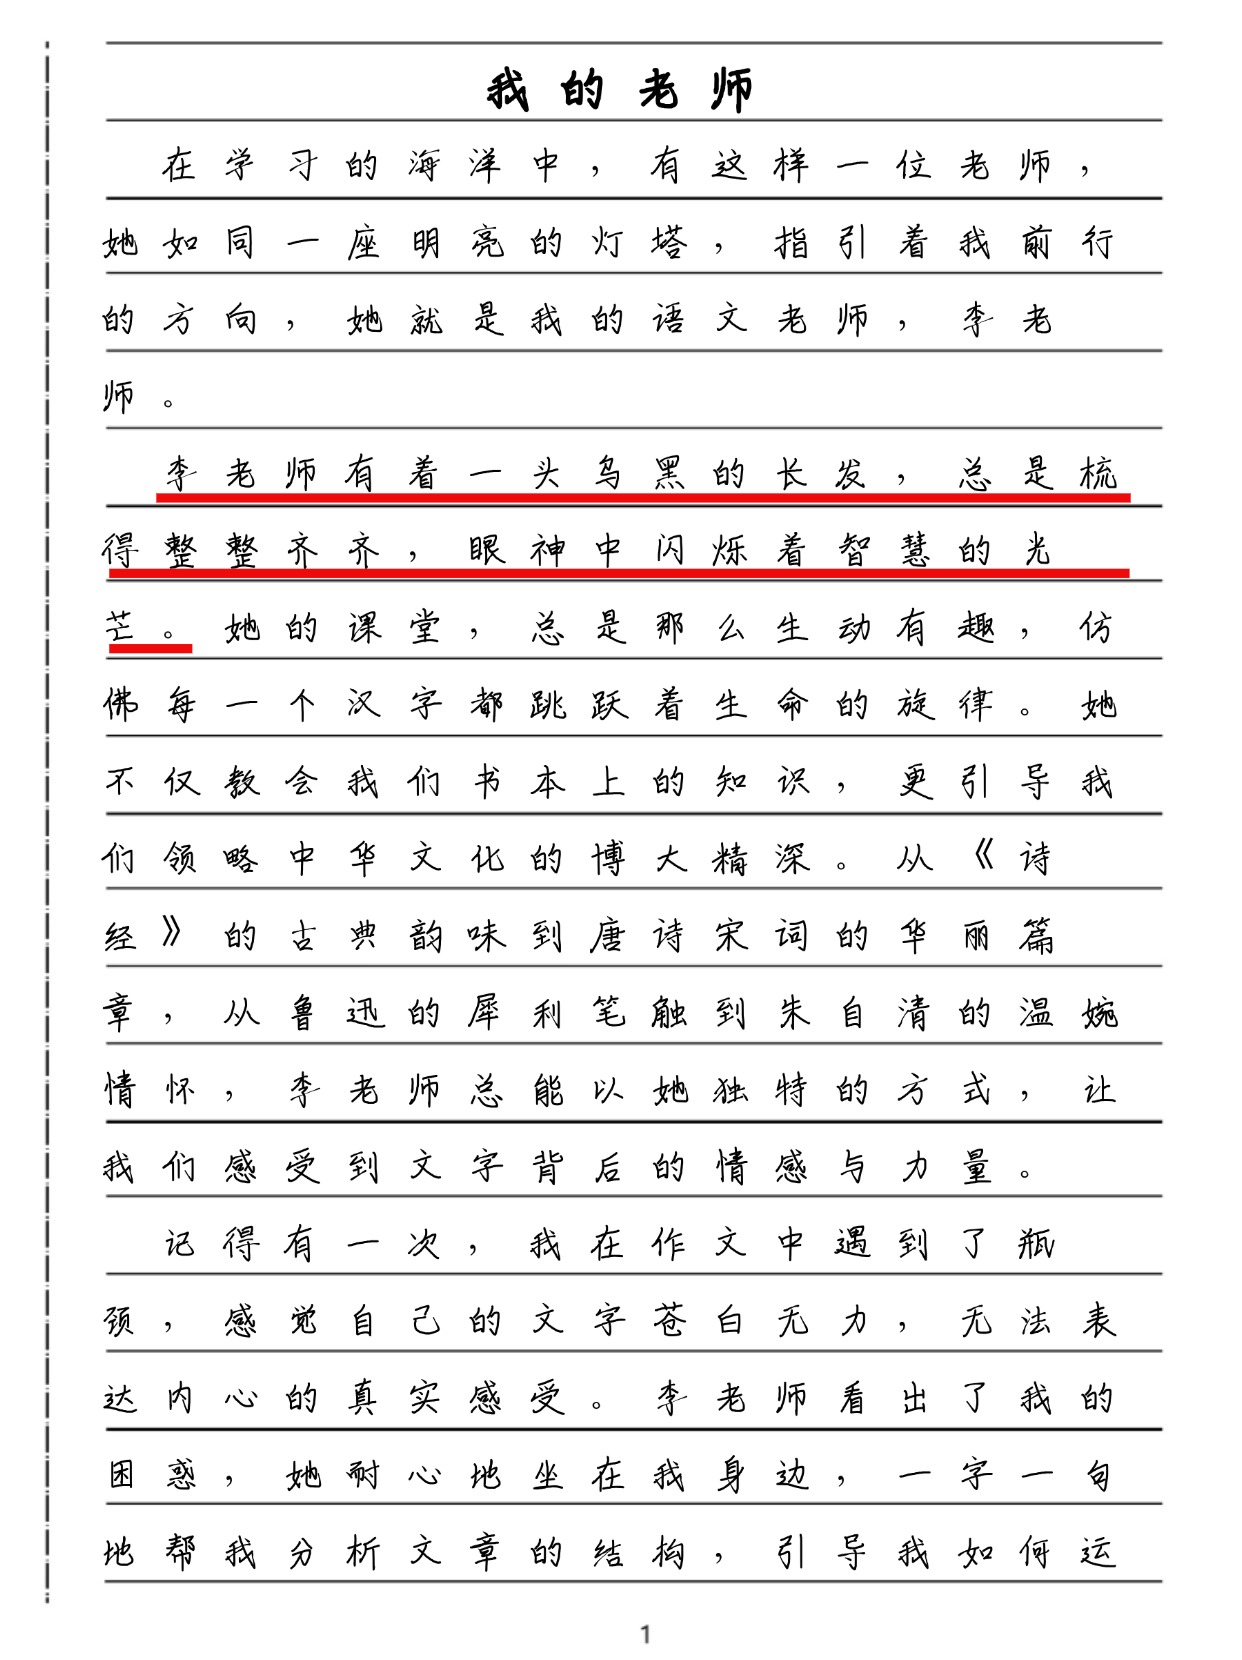 我的老师
在学习的海洋中，有这样一位老师，
她如同一座明亮的灯塔，指引着我前行
的方向，她就是我的语文老师，李老
师。
李老师有着一头乌黑的长发，总是梳
得整整齐齐，眼神中闪烁着智慧的光
芒。她的课堂，总是那么生动有趣，仿
佛每一个汉字都跳跃着生命的旋律。她
不仅教会我们书本上的知识，更引导我
们领略中华文化的博大精深。从《诗
经》的古典韵味到唐诗宋词的华丽篇
章，从鲁迅的犀利笔触到朱自清的温婉
情怀，李老师总能以她独特的方式，让
我们感受到文字背后的情感与力量。
记得有一次，我在作文中遇到了瓶
颈，感觉自己的文字苍白无力，无法表
达内心的真实感受。李老师看出了我的
困惑，她耐心地坐在我身边，一字一句
地帮我分析文章的结构，引导我如何运
1